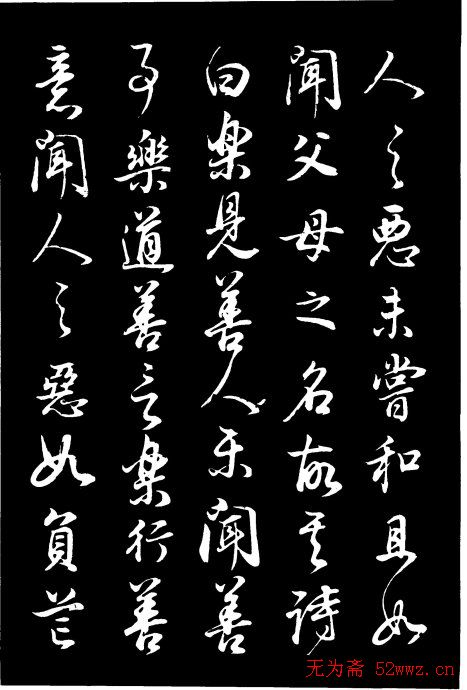 人之惡未嘗和且如
聞父母之名故其詩
曰樂見善人樂聞善
事樂道善言樂行善
意聞人之惡如負芒
无为斋 52wwz.cn